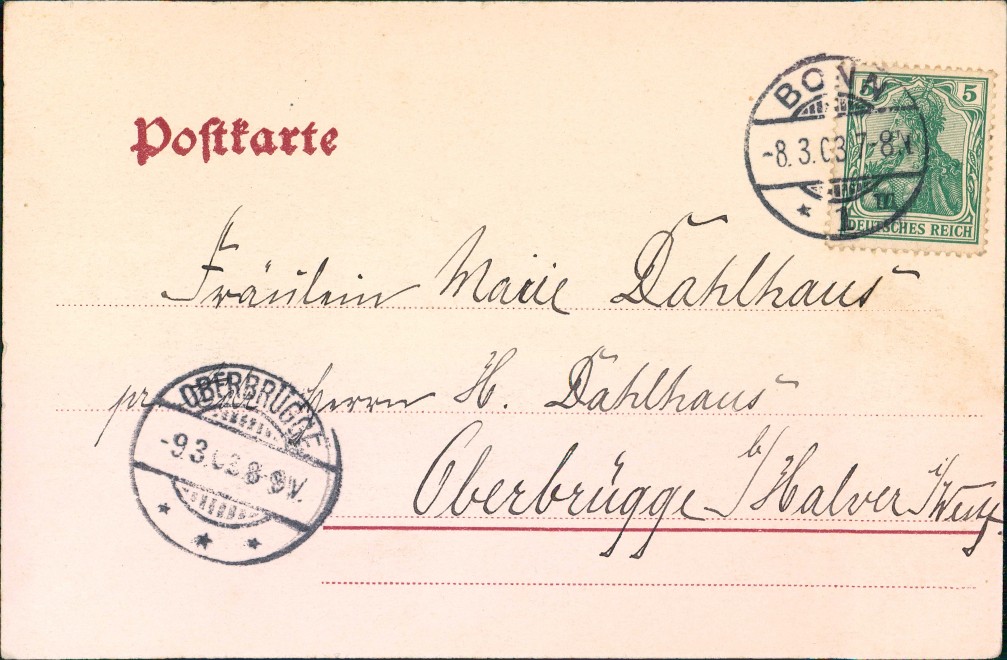 Postkarte
BONN
-8.3.03 7-8V
* 1 m
5 5
DEUTSCHES REICH
Fräulein Marie Dahlhaus
pr Herrn H. Dahlhaus
OBERBRÜGGE
-9.3.03.8-9V.
* * *
Oberbrügge b/Halver i/Westf.